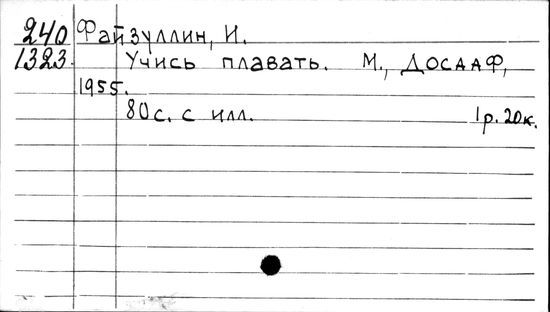 240 Файзуллин, И.
1323. Учись плавать. М., ДОСААФ,
1955.
80с. с илл. 1р. 20к.